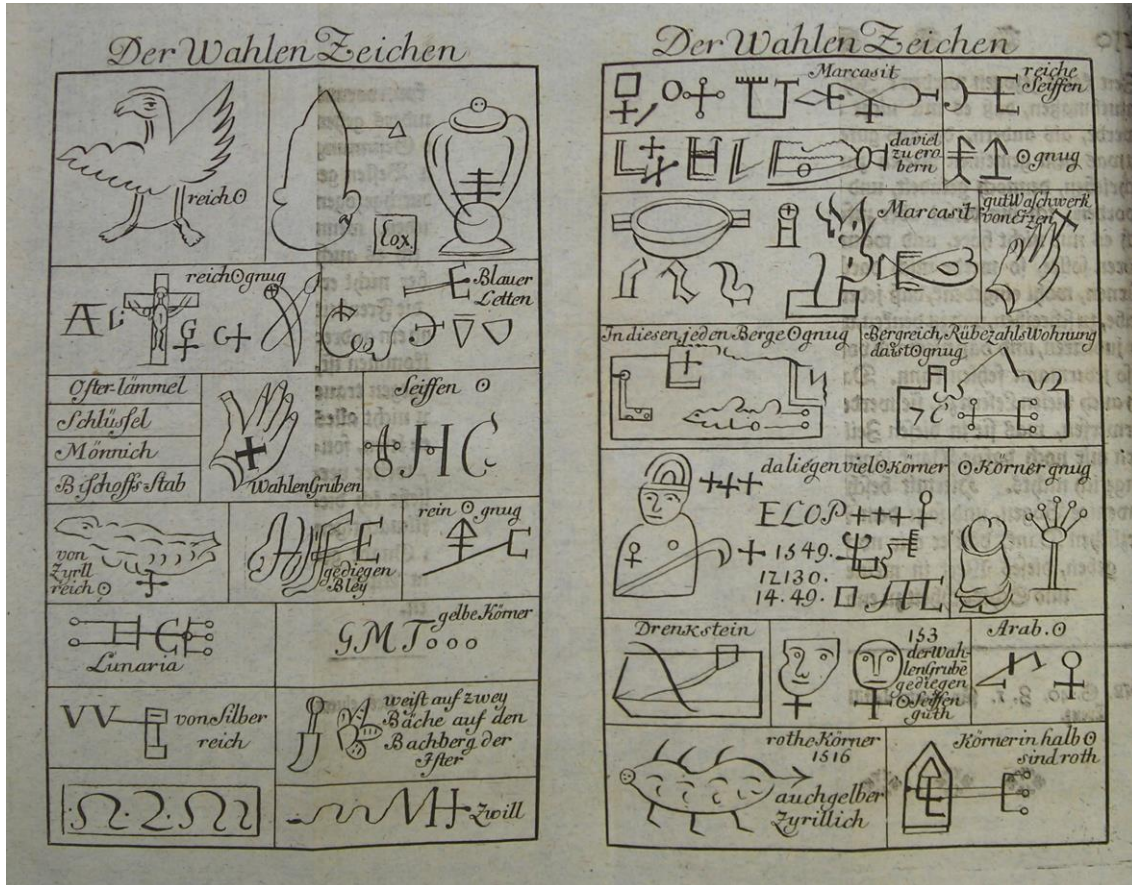 Der Wahlen Zeichen
reich ☉
Cox.
reich ☉ gnug
Blauer
Letten
A
G
G+
Oster-lämmel
Schlüssel
Mönnich
Bischoffs-stab
Wahlen Gruben
Seiffen ☉
H C
von
Zyrll
reich ☉
gediegen
Bley
rein ☉ gnug
Lunaria
gelbe Körner
G M T o o o
VV
von Silber
reich
weist auf zwey
Bäche auf den
Bachberg der
Ister
Zwill
Der Wahlen Zeichen
Marcasit
reiche
Seiffen
da viel
zu ero
bern
☉ gnug
Marcasit
gut Waschwerk
von Erzen
In diesen, jeden Berge ☉ gnug
Bergreich, Rübezahls Wohnung
da ist ☉ gnug
da liegen viel ☉ Körner
ELOP++++
+ 1549.
12130.
14.49.
☉ Körner gnug
Drenkstein
153
der Wah-
len Grube
gediegen
i ☉ Seiffen
guth
Arab. ☉
rothe Körner
1516
auch gelber
Zyrillich
Körner in halb ☉
sind roth